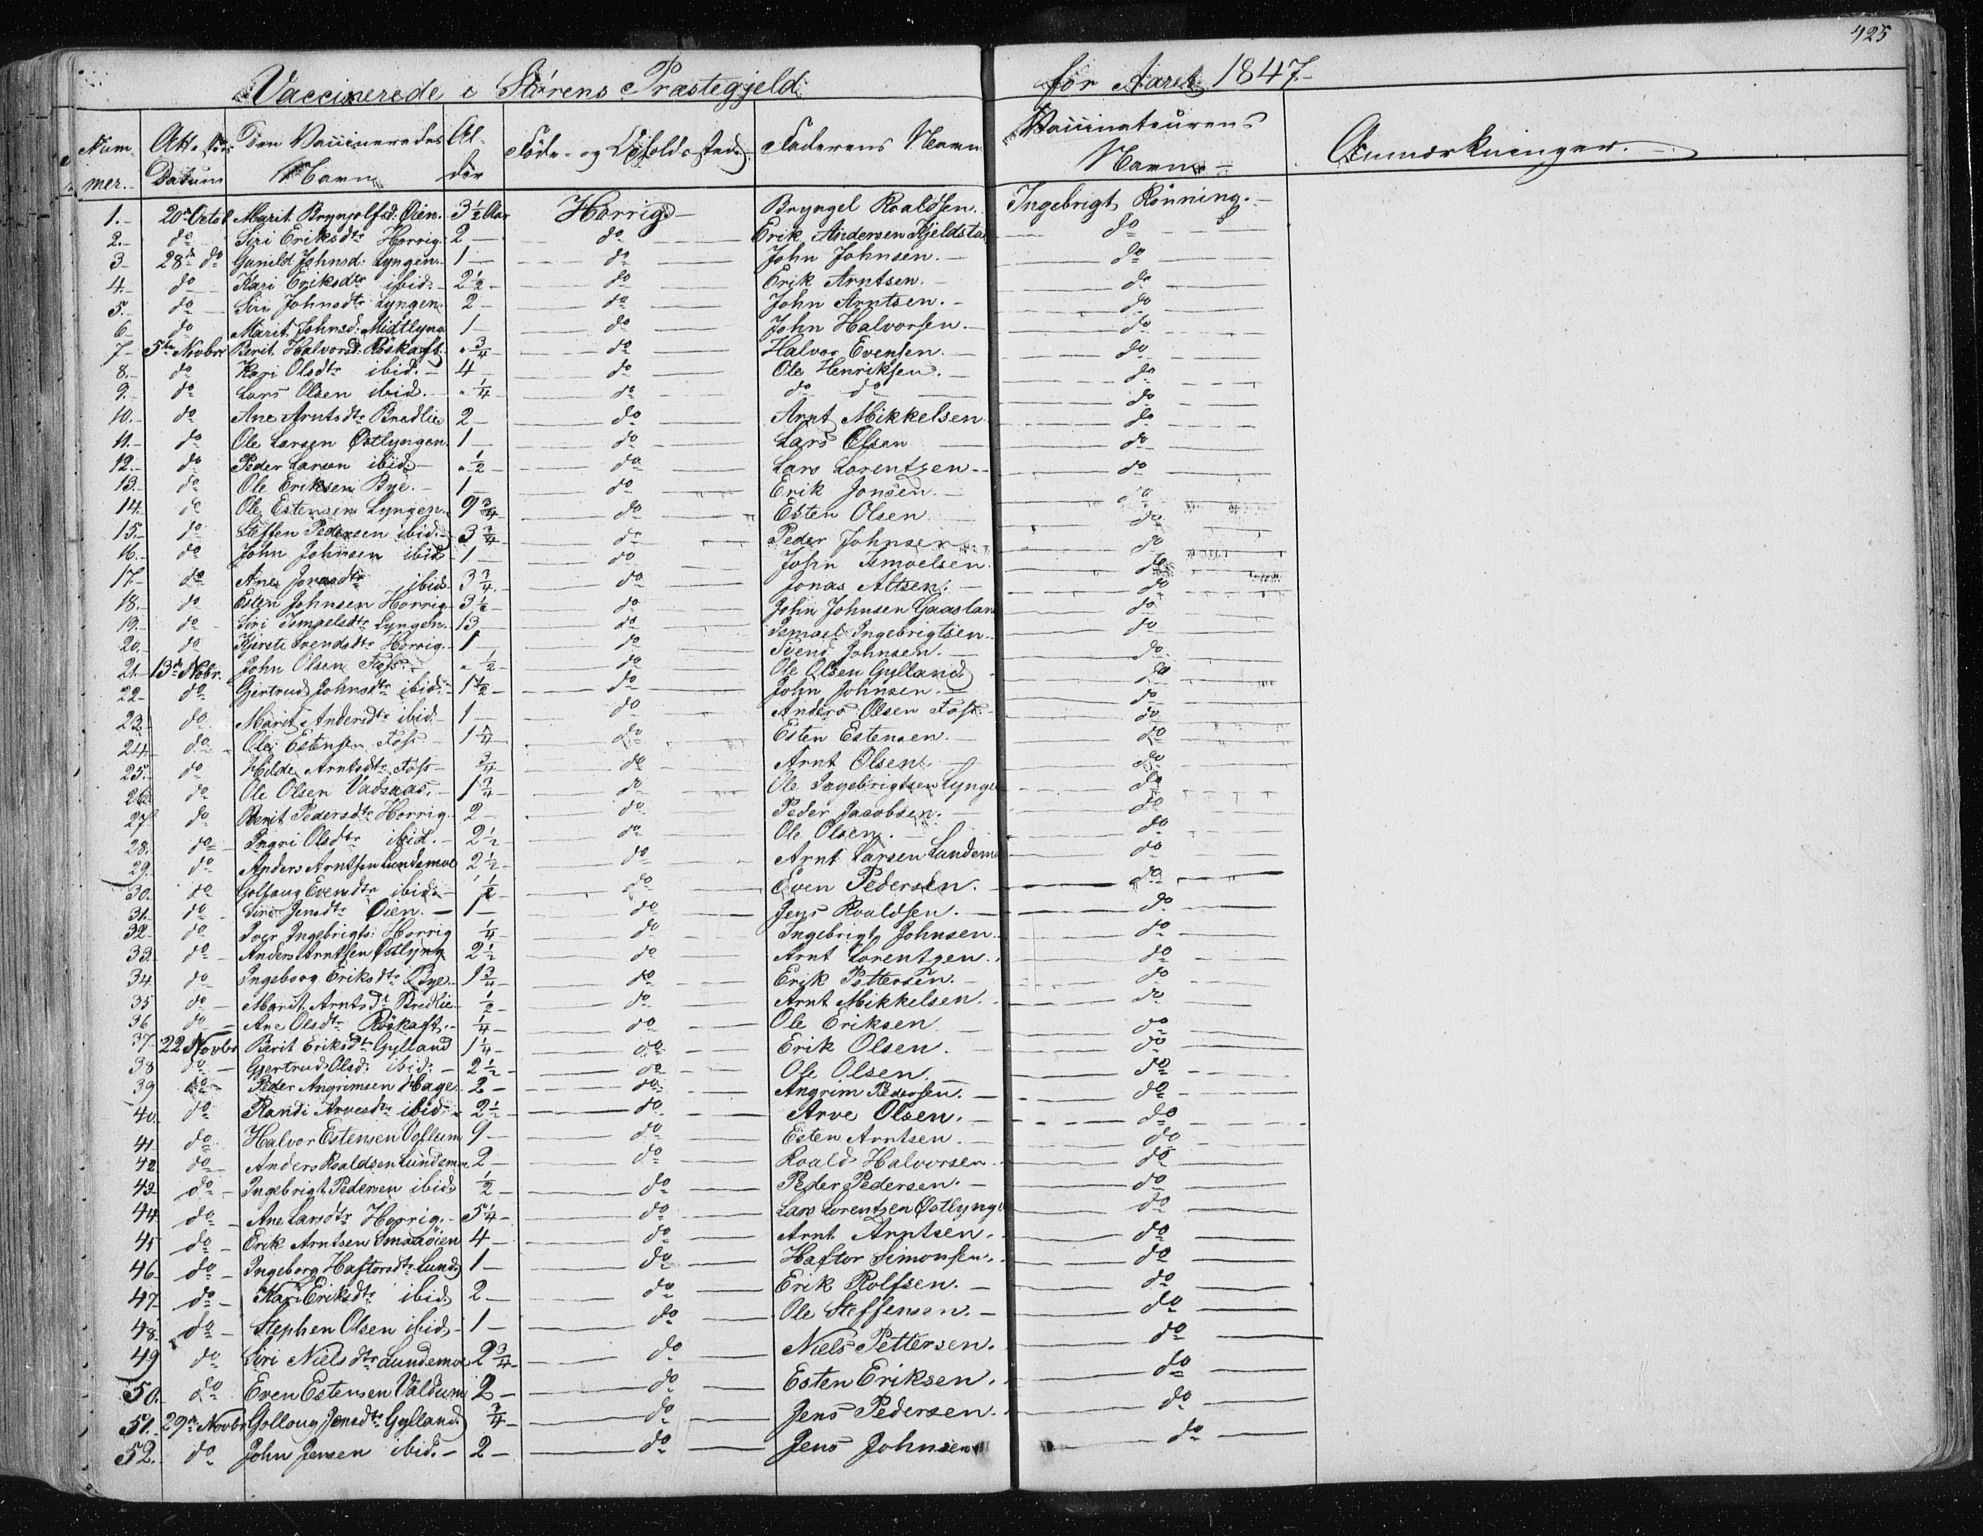 425
Vaccinerede i Størens Præstegjeld for Aaret 1847.
Num- mer. Datum Den Vaccineredes Navn Al- der Føde- og Opholdssted Faderens Navn Vaccinateurens Navn Anmærkninger.
1. 20de Octob Marit Brynjolfsd: Øien. 3 1/2 Aar Horrig Bryngel Roaldsen. Ingebrigt Rönning.
2. do Siri Eriksdtr Horrig. 2 do Erik Andersen Kjeldstad do
3 28de do Gunild Johnsd. Lyngen. 1 do John Johnsen. do
4. do Kari Eriksdtr ibid. 2 1/2 do Erik Arntsen. do
5. do Siri Johnsdtr Lyngen. 2 do John Arntsen. do
6 do Marit Johnsd: Midtlyng 1 do John Halvorsen. do
7 5te Novbr Berit Halvorsd: Röskaft " 3/4 do Halvor Evensen. do
8. do Kari Olsdtr ibid. 4 do Ole Henriksen. do
9. do Lars Olsen ibid. " 1/4 do do do do
10. do Ane Arntsdtr Bredlie 2 do Arnt Mikkelsen do
11. do Ole Larsen Østlyngen 1 do Lars Olsen do
12. do Peder Larsen ibid. " 1/2 do Lars Lorentzen do
13. do Ole Eriksen Bye. 1 do Erik Jonsen. do
14. do Ole Estensen Lyngen. 9 3/4 do Esten Olsen do
15. do Steffen Pedersen ibid. 3 3/4 do Peder Johnsen do
16. do John Johnsen ibid 1 do John Ismoelsen do
17. do Ane Jonasdtr ibid. 3 3/4 do Jonas Altsen. do
18. do Esten Johnsen Horrig. 3 1/2 do John Johnsen Gaasland do
19. do Siri Ismoelsdtr Lyngen. 13 do Ismael Ingebrigtsen. do
20. do Kjersti Svendsdtr Horrig. 1 do Svend Johnsen. do
21. 13de Nobr. John Olsen Foss " 1/2 do Ole Olsen Gylland do
22 do Gjertrud Johnsdtr ibid. 1 1/2 do John Johnsen. do
23. do Marit Andersdtr ibid. 1 do Anders Olsen Foss. do
24. do Ole Estensen Foss 1 1/4 do Esten Estensen. do
25. do Hilde Arntsdtr Foss 3/4 do Arnt Olsen. do
26. do Ole Olsen Vadsaas. 1 3/4 do Ole Ingebrigtsen Lyngen do
27 do Berit Pedersdtr Horrig. 2 do Peder Jacobsen. do
28. do Ingri Olsdtr ibid. 2 1/2 do Ole Olsen. do
29. do Anders Arntsen Lundemoe 2 1/2 do Arnt Larsen Lundemo do
30. do Golfaug Evendtr ibid. 1/2 do Even Pedersen. do
31. do Siri Jensdtr Øien. 1 do Jens Roaldsen. do
32 do Iver Ingebrigts: Horrig 1/4 do Ingebrigt Johnsen. do
33. do Anders Arntsen Østlyng 2 1/2 do Arnt Lorentzen. do
34. do Ingeborg Eriksdtr Bye. 1 3/4 do Erik Pettersen. do
35 do Marit Arntsdtr Bredlie 1/2 do Arnt Mikkelsen. do
36 do Ane Olsdtr Röskaft. 1/4 do Ole Eriksen do
37 22 Novbr Berit Eriksdtr Gylland 1 1/4 do Erik Olsen. do
38 do Gjertrud Olsd: ibid. 2 1/2 do Ole Olsen. do
39 do Peder Angrimsen Hage 2 do Angrim Pedersen. do
40. do Randi Arvesdtr ibid. 2 1/2 do Arve Olsen. do
41. do Halvor Estensen Vollum 9 do Esten Arntsen. do
42. do Anders Roaldsen Lundemo 2 do Roald Halvorsen. do
43. do Ingebrigt Pedersen ibid. 1/2 do Peder Pedersen. do
44 do Ane Larsdtr Horrig. 5 1/4 do Lars Lorentzen Østlyng do
45 do Erik Arntsen Smaaöien 4 do Arnt Arntsen. do
46. do Ingeborg Haftorsdtr Lund 1 do Haftor Simonsen. do
47. do Kari Eriksdtr ibid 2 do Erik Rolfsen. do
48. do Stephen Olsen ibid. 1 do Ole Steffensen. do
49 do Siri Nielsdtr Lundemoe 2 3/4 do Niels Pettersen. do
50. do Even Estensen Valdum 2 do Esten Eriksen. do
51. 29de Novbr Golloug Jensdtr Gylland 3/4 do Jens Pedersen. do
52. do John Jensen ibid. 2 do Jens Johnsen do